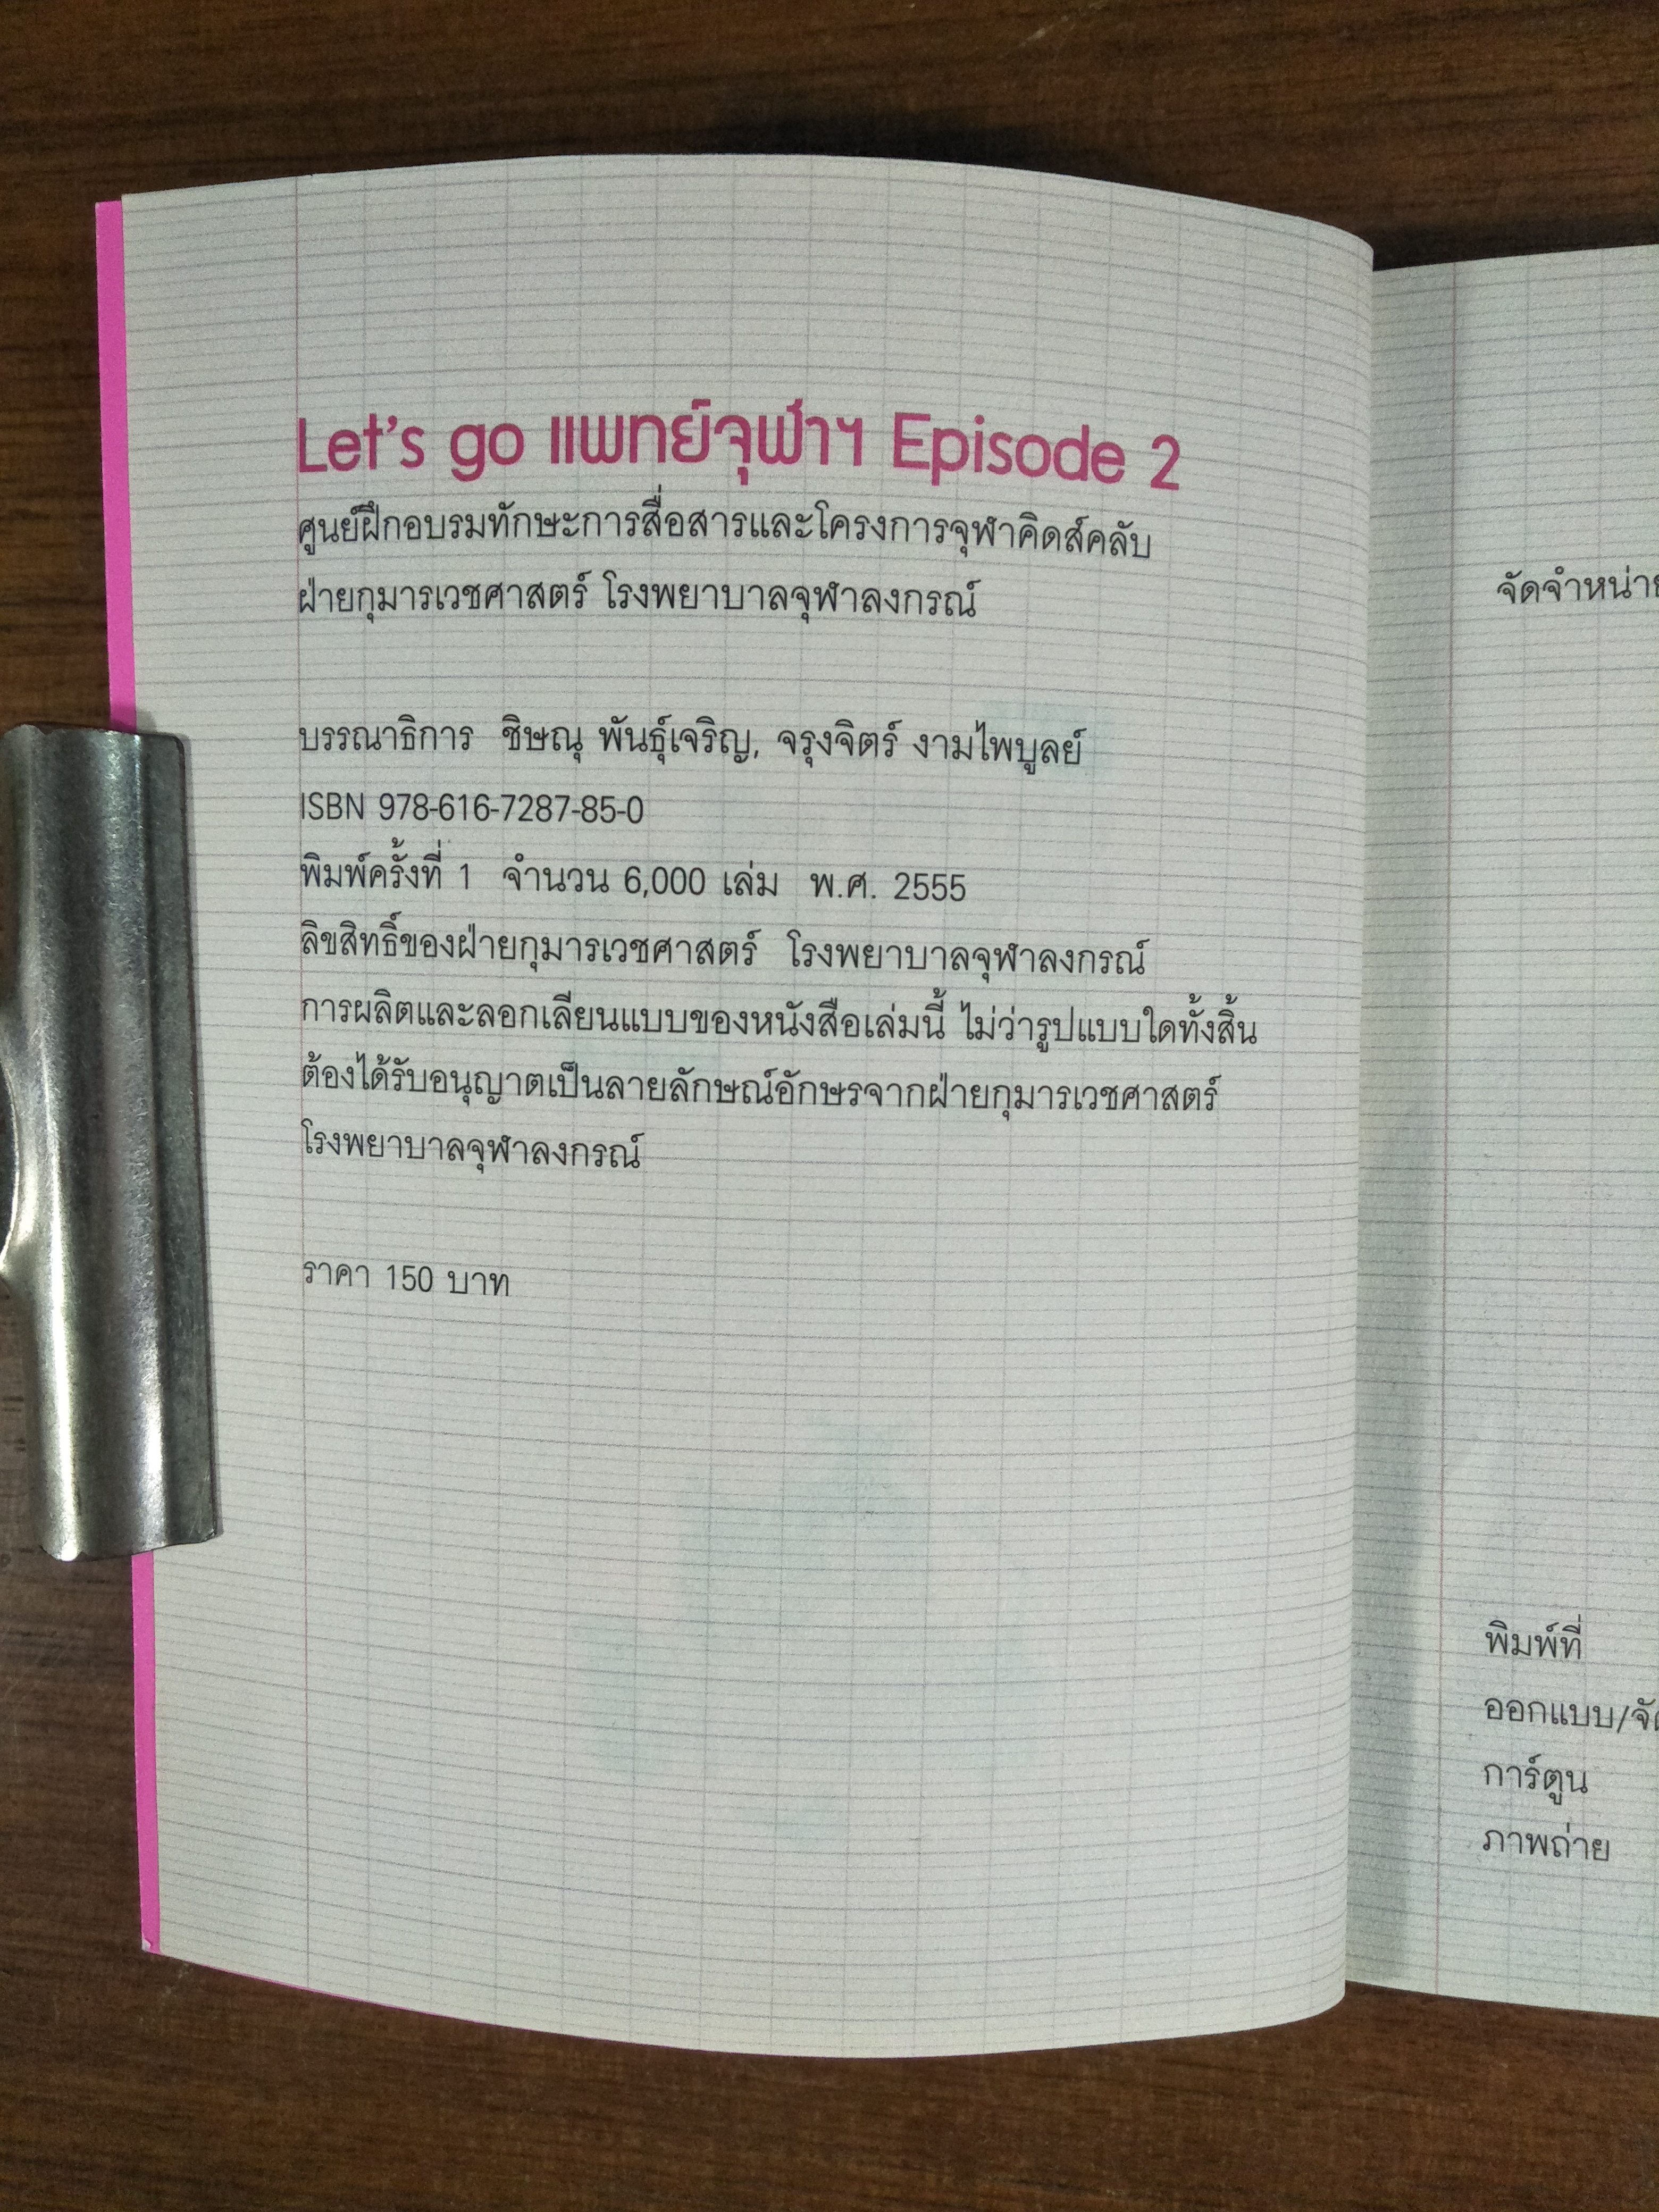 Let's go แพทย์จุฬาฯ Episode 2
ศูนย์ฝึกอบรมทักษะการสื่อสารและโครงการจุฬาคิดส์คลับ
ฝ่ายกุมารเวชศาสตร์ โรงพยาบาลจุฬาลงกรณ์
บรรณาธิการ ชิษณุ พันธุ์เจริญ, จรุงจิตร์ งามไพบูลย์
ISBN 978-616-7287-85-0
พิมพ์ครั้งที่ 1 จำนวน 6,000 เล่ม พ.ศ. 2555
ลิขสิทธิ์ของฝ่ายกุมารเวชศาสตร์ โรงพยาบาลจุฬาลงกรณ์
การผลิตและลอกเลียนแบบของหนังสือเล่มนี้ ไม่ว่ารูปแบบใดทั้งสิ้น
ต้องได้รับอนุญาตเป็นลายลักษณ์อักษรจากฝ่ายกุมารเวชศาสตร์
โรงพยาบาลจุฬาลงกรณ์
ราคา 150 บาท
พิมพ์ที่
ออกแบบ/
การ์ตูน
ภาพถ่าย